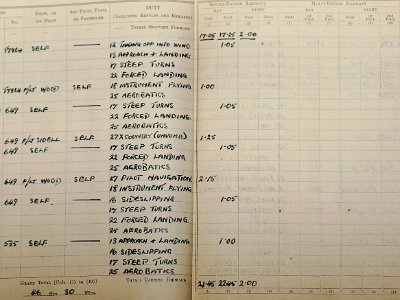 PILOT, OR 1ST PILOT
2ND PILOT, PUPIL OR PASSENGER
DUTY
(INCLUDING RESULTS AND REMARKS)
SINGLE-ENGINE AIRCRAFT
MULTI-ENGINE AIRCRAFT
DAY
NIGHT
DAY
NIGHT
TOTALS BROUGHT FORWARD
17·05 17·25 2·00
SELF — 12 TAKING OFF INTO WIND 1·05
13 APPROACH + LANDING
17 STEEP TURNS
22 FORCED LANDING
F/LT WOOD SELF 18 INSTRUMENT FLYING 1·00
25 AEROBATICS
649 SELF — 17 STEEP TURNS 1·05
22 FORCED LANDING.
25 AEROBATICS
649 F/LT SIDELL SELF 27X COUNTRY 1·25
649 SELF — 17 STEEP TURNS 1·05
22 FORCED LANDING
25 AEROBATICS
649 F/LT WOOD SELF 27 PILOT NAVIGATION 2·15
18 INSTRUMENT FLYING
649 SELF — 16 SIDESLIPPING 1·05
17 STEEP TURNS
22 FORCED LANDING
25 AEROBATICS
635 SELF — 13 APPROACH + LANDING 1·00
16 SIDESLIPPING
17 STEEP TURNS
25 AEROBATICS
GRAND TOTAL [Cols. (1) to (10)]
46 Hrs. 30 Mins.
TOTALS CARRIED FORWARD
21·45 22·45 2·00